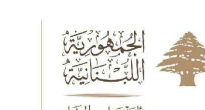 الجُمْهُورِيَّةُ
اللُّبْنَانِيَّة